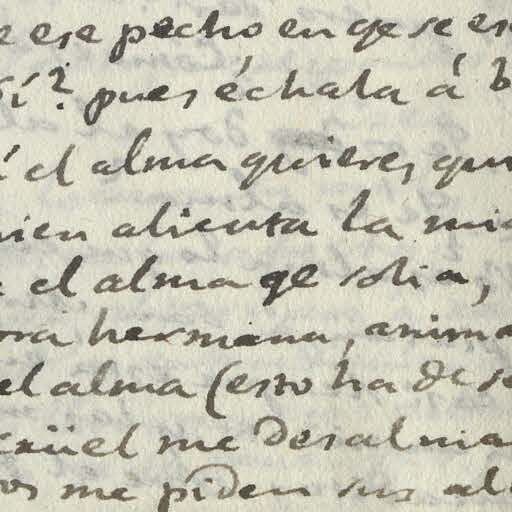 e ese pecho, en qe se es
sí? pues échala á b
í el alma quieres, qui
ien alienta la mia
e el alma qe solia,
ora hermana, anima
el alma (esto ha de se
crüel me desalma
os me piden sus al